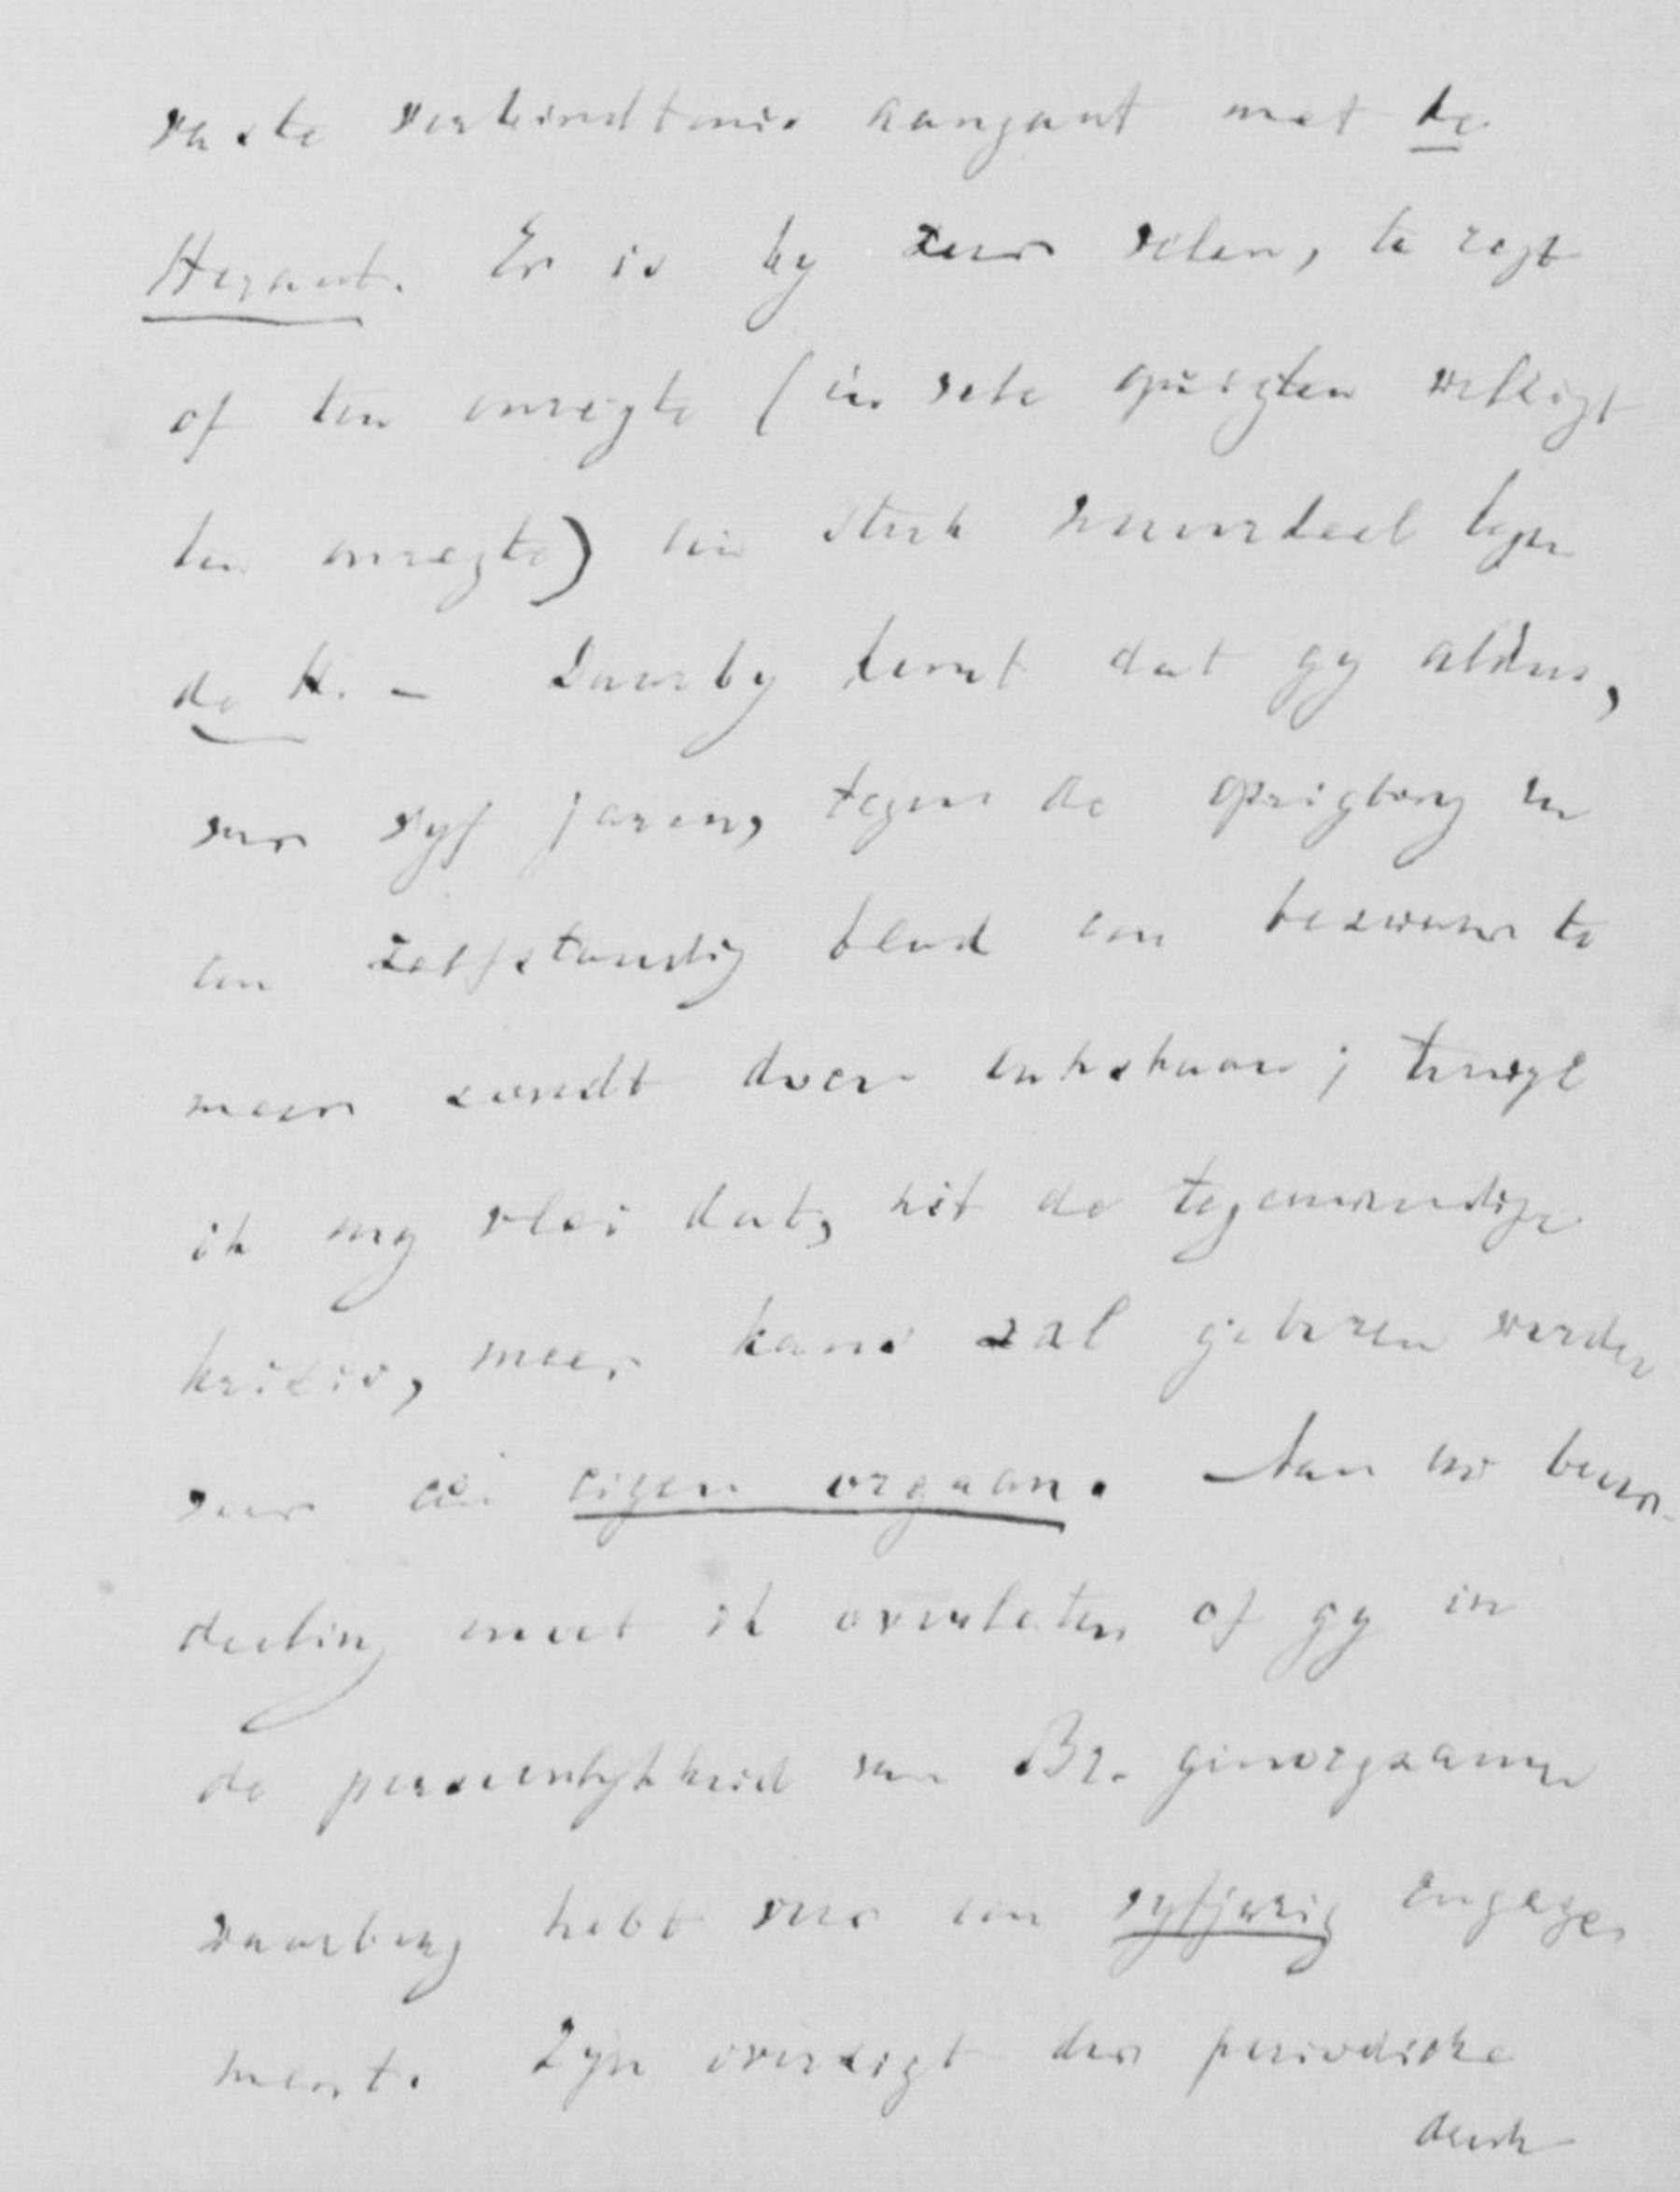 vaste verbindtenis aangaat met de
Heraut. Er is by zeer velen, te regt
of ten onregte (in vele opzigten wellligt
ten onregte) een sterk vooroordeel tegen
de H. – Daarby komt dat gy aldus,
voor vyf jaren, tegen de oprigting van
een zelfstandig blad een bezwaar te
meer zoudt doen ontstaan; terwyl
ik my vlei dat, uit de tegenwoordige
krisis, meer kans zal geboren worden
voor een eigen orgaan. Aan uw beoor-
deeling moet ik overlaten of gy in
de persoonlykheid van Br. genoegzamen
waarborg hebt voor een vyfjarig engage-
ment. Zyn overzigt der periodieke
druk